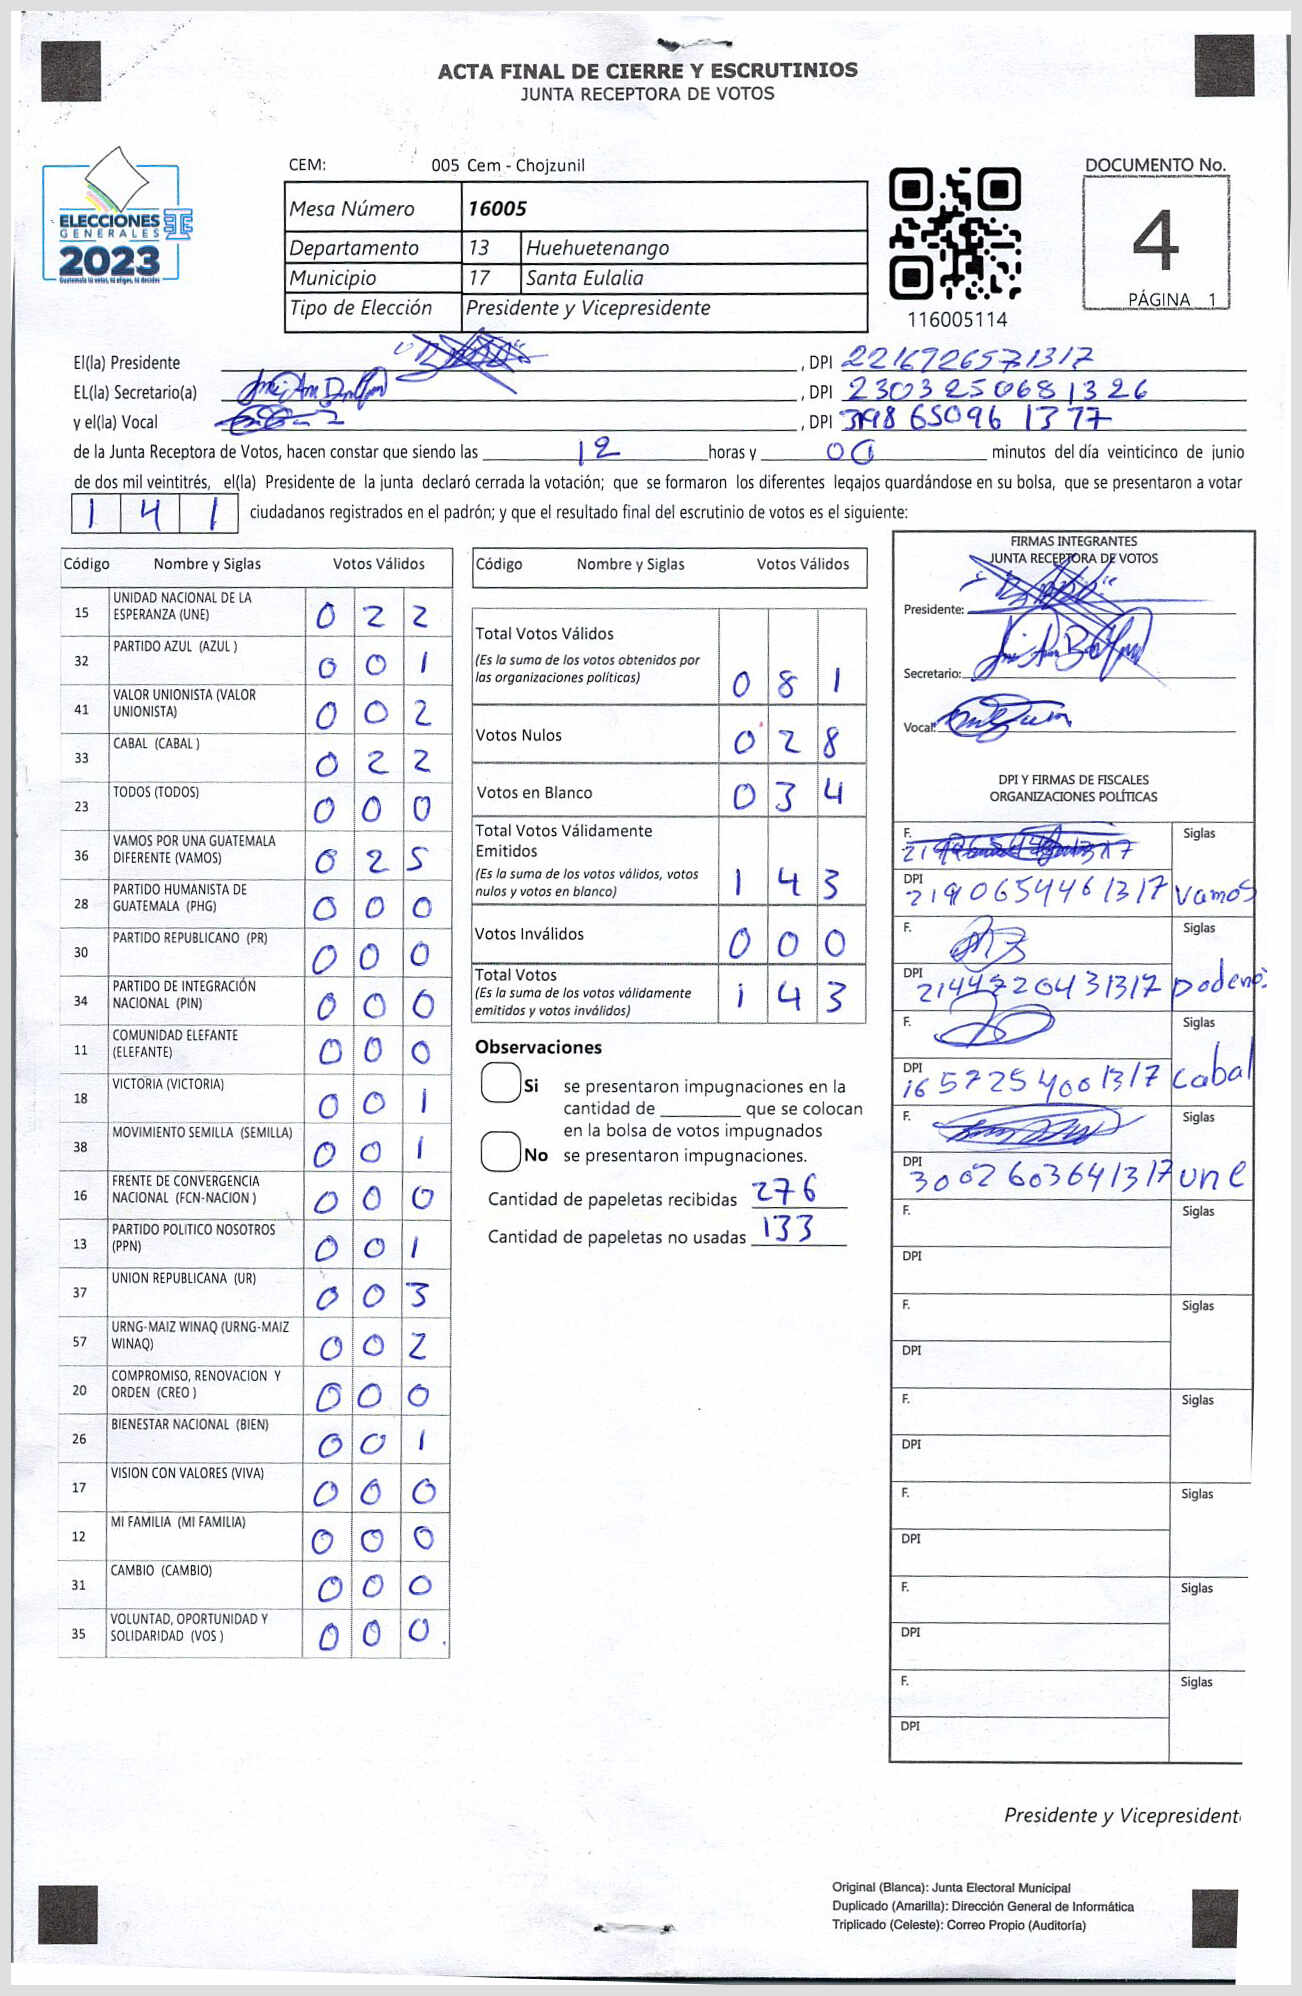 ACTA FINAL DE CIERRE Y ESCRUTINIOS
JUNTA RECEPTORA DE VOTOS
ELECCIONES
GENERALES
2023
Guatemala tú votas, tú eliges, tú decides
CEM: 005 Cem - Chojzunil
Mesa Número 16005
Departamento 13 Huehuetenango
Municipio 17 Santa Eulalia
Tipo de Elección Presidente y Vicepresidente
116005114
DOCUMENTO No.
4
PÁGINA 1
El(la) Presidente , DPI 2216926571317
EL(la) Secretario(a) , DPI 2303250681326
y el(la) Vocal , DPI
de la Junta Receptora de Votos, hacen constar que siendo las 12 horas y 00 minutos del día veinticinco de junio
de dos mil veintitrés, el(la) Presidente de la junta declaró cerrada la votación; que se formaron los diferentes legajos guardándose en su bolsa, que se presentaron a votar
1 4 1 ciudadanos registrados en el padrón; y que el resultado final del escrutinio de votos es el siguiente:
Código Nombre y Siglas Votos Válidos
15 UNIDAD NACIONAL DE LA ESPERANZA (UNE) 0 2 2
32 PARTIDO AZUL (AZUL ) 0 0 1
41 VALOR UNIONISTA (VALOR UNIONISTA) 0 0 2
33 CABAL (CABAL ) 0 2 2
23 TODOS (TODOS) 0 0 0
36 VAMOS POR UNA GUATEMALA DIFERENTE (VAMOS) 0 2 5
28 PARTIDO HUMANISTA DE GUATEMALA (PHG) 0 0 0
30 PARTIDO REPUBLICANO (PR) 0 0 0
34 PARTIDO DE INTEGRACIÓN NACIONAL (PIN) 0 0 0
11 COMUNIDAD ELEFANTE (ELEFANTE) 0 0 0
18 VICTORIA (VICTORIA) 0 0 1
38 MOVIMIENTO SEMILLA (SEMILLA) 0 0 1
16 FRENTE DE CONVERGENCIA NACIONAL (FCN-NACION ) 0 0 0
13 PARTIDO POLITICO NOSOTROS (PPN) 0 0 1
37 UNION REPUBLICANA (UR) 0 0 3
57 URNG-MAIZ WINAQ (URNG-MAIZ WINAQ) 0 0 2
20 COMPROMISO, RENOVACION Y ORDEN (CREO ) 0 0 0
26 BIENESTAR NACIONAL (BIEN) 0 0 1
17 VISION CON VALORES (VIVA) 0 0 0
12 MI FAMILIA (MI FAMILIA) 0 0 0
31 CAMBIO (CAMBIO) 0 0 0
35 VOLUNTAD, OPORTUNIDAD Y SOLIDARIDAD (VOS ) 0 0 0
Código Nombre y Siglas Votos Válidos
Total Votos Válidos
(Es la suma de los votos obtenidos por
las organizaciones políticas) 0 8 1
Votos Nulos 0 2 8
Votos en Blanco 0 3 4
Total Votos Válidamente
Emitidos
(Es la suma de los votos válidos, votos
nulos y votos en blanco) 1 4 3
Votos Inválidos 0 0 0
Total Votos
(Es la suma de los votos válidamente
emitidos y votos inválidos) 1 4 3
Observaciones
Si se presentaron impugnaciones en la
cantidad de ________ que se colocan
en la bolsa de votos impugnados
No se presentaron impugnaciones.
Cantidad de papeletas recibidas 276
Cantidad de papeletas no usadas 133
FIRMAS INTEGRANTES
JUNTA RECEPTORA DE VOTOS
Presidente:
Secretario:
Vocal:
DPI Y FIRMAS DE FISCALES
ORGANIZACIONES POLÍTICAS
F. Siglas
DPI 2191065446 1317 Vamos
F. Siglas
DPI 2144722043 1317
F. Siglas
DPI 1657225400 1317 Cabal
F. Siglas
DPI 3002603641317 une
F. Siglas
DPI
F. Siglas
DPI
F. Siglas
DPI
F. Siglas
DPI
F. Siglas
DPI
F. Siglas
DPI
Presidente y Vicepresident
Original (Blanca): Junta Electoral Municipal
Duplicado (Amarilla): Dirección General de Informática
Triplicado (Celeste): Correo Propio (Auditoría)